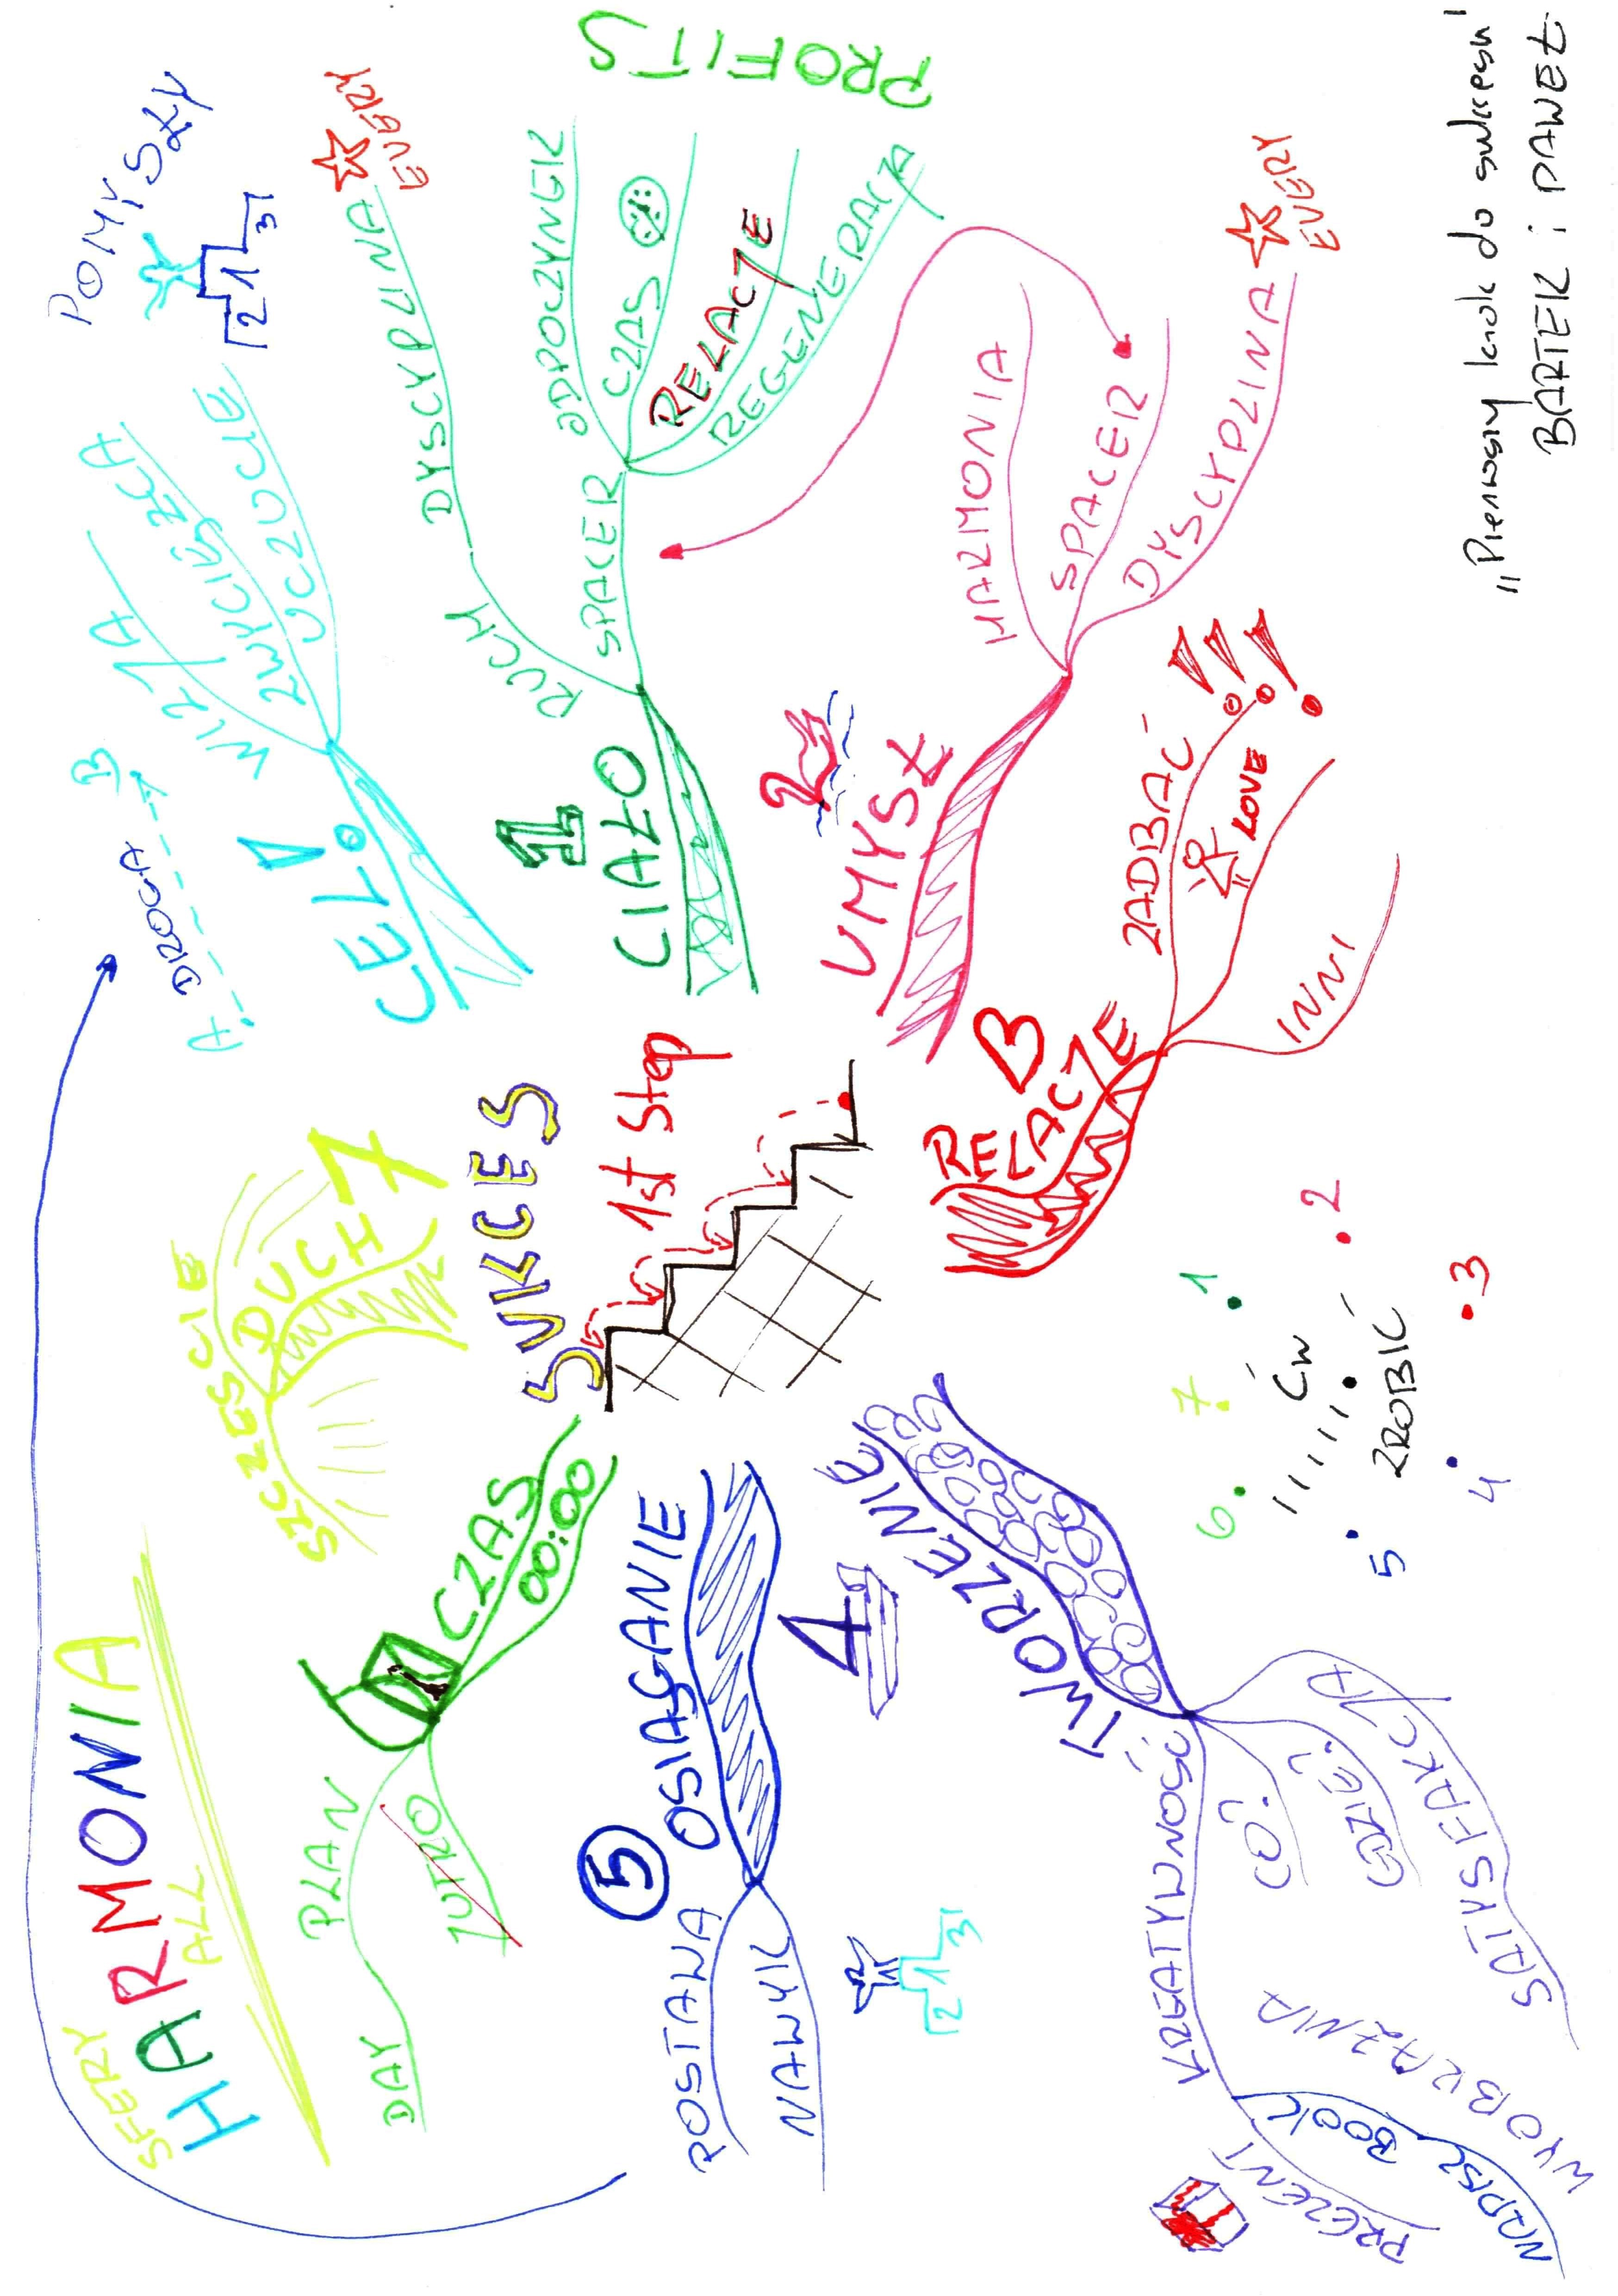 SUKCES
1st Step
CEL!
A DROGA B
WIZJA
ZWYCIĘZCA
UCZUCIE
POMYSŁY
2 1 3
1
CIAŁO
RUCH
DYSCYPLINA
EVERY
SPACER
ODPOCZYNEK
CZAS
RELACJE
REGENERACJA
PROFITS
2
UMYSŁ
HARMONIA
SPACER
DYSCYPLINA
EVERY
3
RELACJE
ZADBAĆ !!!
LOVE
INNI
4
TWORZENIE
KREATYWNOŚĆ
CO?
GDZIE?
SATYSFAKCJA
WYOBRAŹNIA
NAPISZ BOOK
PREZENT
5
OSIĄGANIE
POSTAWA
NAWYK
2 1 3
CZAS
00:00
PLAN
DAY
JUTRO
7
DUCH
SZCZĘŚCIE
SFERY
HARMONIA
ALL
1
2
3
4
5
6
7
ĆW
ZROBIĆ
„Pierwszy krok do sukcesu"
BARTEK i PAWEŁ